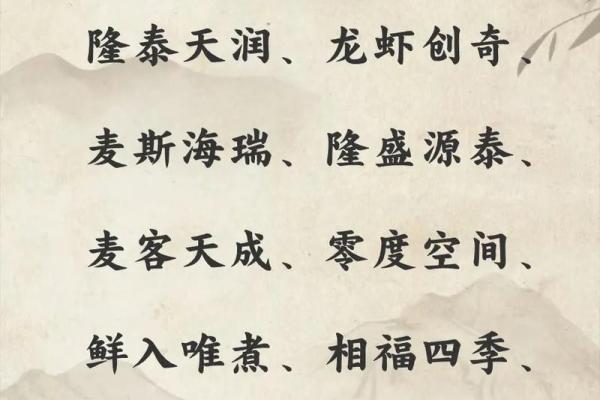 隆泰天润、龙虾创奇、
麦斯海瑞、隆盛源泰、
麦客天成、零度空间、
鲜入唯煮、相福四季、